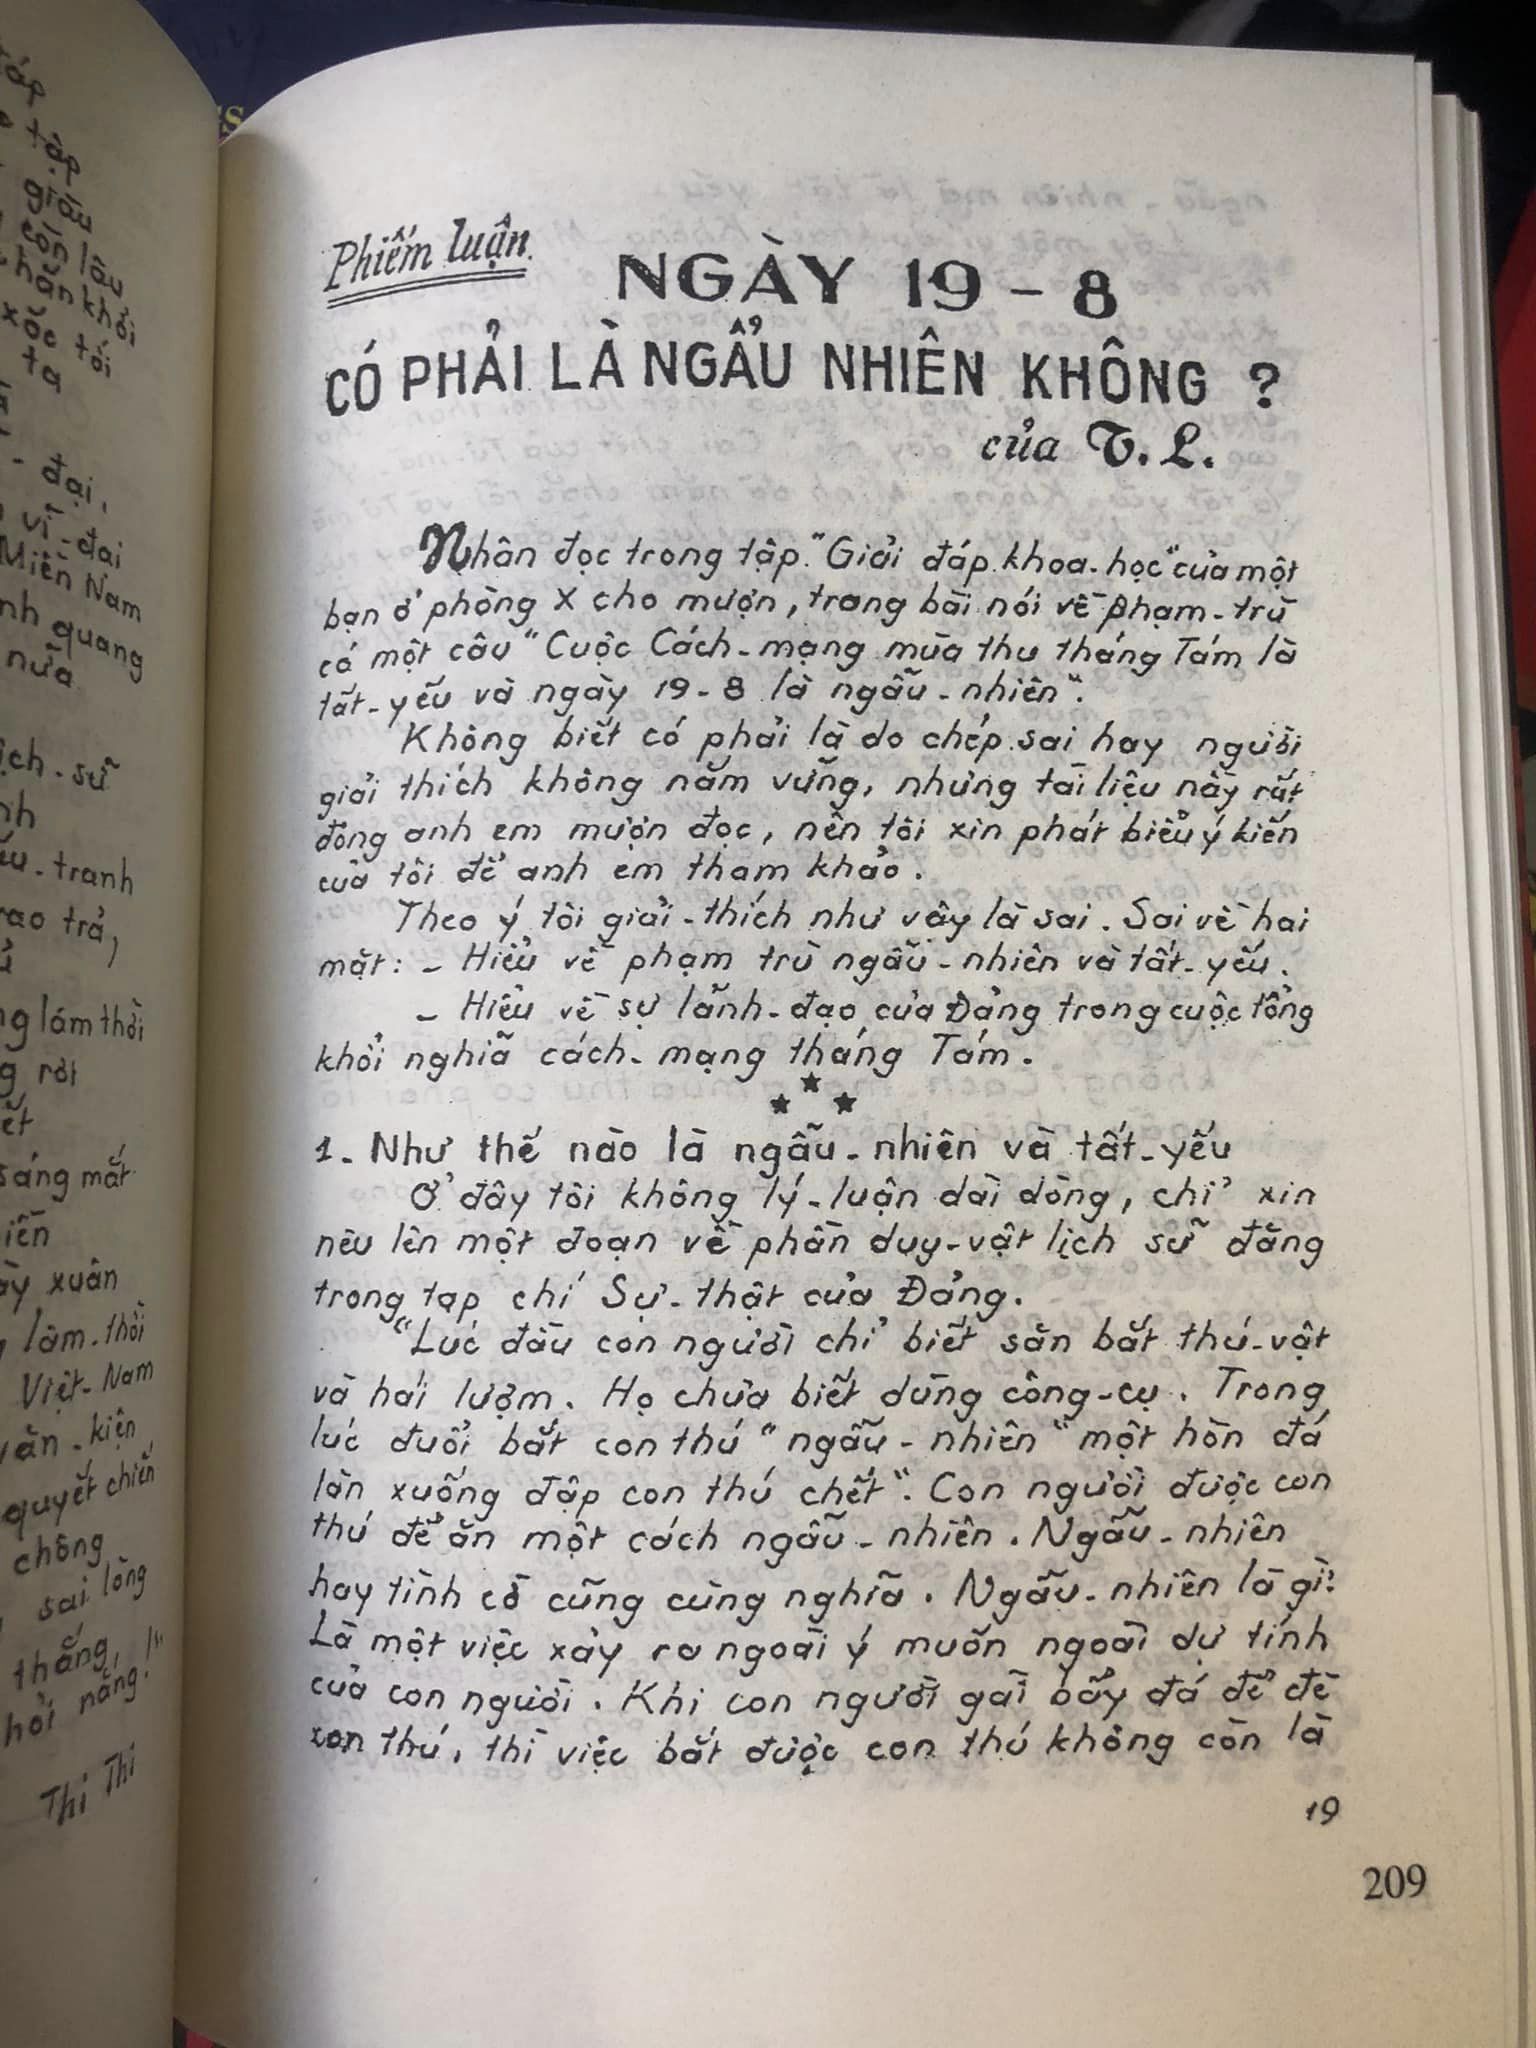 táp
tập
giấu
còn lâu
hắn khỏi
xốc tới
ta
đại,
vĩ-đại
Miền Nam
nh quang
nữa
ịch-sử
nh
ấu-tranh
rao trả,
ng lâm thời
g rơi
ết
sáng mắt
iền
ày xuân
lâm-thời
Việt-Nam
văn-kiện
quyết chiến
chông
sai lòng
thắng,
hỏi năng!"
Thi Thi
Phiếm luận
NGÀY 19-8
CÓ PHẢI LÀ NGẪU NHIÊN KHÔNG ?
của T.L.
Nhân đọc trong tập "Giải đáp khoa-học" của một
bạn ở phòng X cho mượn, trong bài nói về phạm-trù
có một câu "Cuộc Cách-mạng mùa thu tháng Tám là
tất-yếu và ngày 19-8 là ngẫu-nhiên".
Không biết có phải là do chép sai hay người
giải thích không nắm vững, nhưng tài liệu này rất
đông anh em mượn đọc, nên tôi xin phát biểu ý kiến
của tôi để anh em tham khảo.
Theo ý tôi giải-thích như vậy là sai. Sai về hai
mặt: - Hiểu về phạm trù ngẫu-nhiên và tất-yếu.
- Hiểu về sự lãnh-đạo của Đảng trong cuộc tổng
khởi nghĩa cách-mạng tháng Tám.
1- Như thế nào là ngẫu-nhiên và tất-yếu
Ở đây tôi không lý-luận dài dòng, chỉ xin
nêu lên một đoạn về phần duy-vật lịch sử đăng
trong tạp chí Sự-thật của Đảng.
"Lúc đầu con người chỉ biết săn bắt thú-vật
và hái lượm. Họ chưa biết dùng công-cụ. Trong
lúc đuổi bắt con thú "ngẫu-nhiên" một hòn đá
lăn xuống đập con thú chết". Con người được con
thú để ăn một cách ngẫu-nhiên. Ngẫu-nhiên
hay tình cờ cũng cùng nghĩa. Ngẫu-nhiên là gì?
Là một việc xảy ra ngoài ý muốn ngoài dự tính
của con người. Khi con người gài bẫy đá để đè
con thú, thì việc bắt được con thú không còn là
19
209